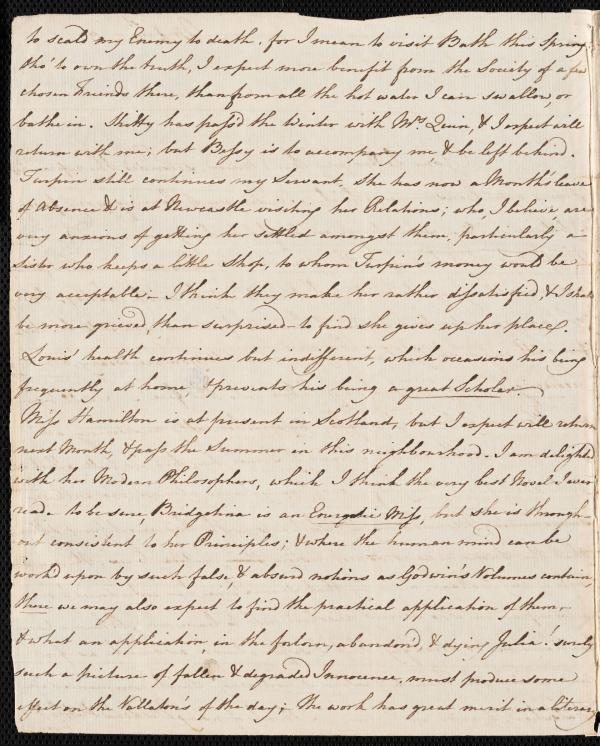 to scald my Enemy to death, for I mean to visit Bath this Spring
tho' to own the truth, I expect more benefit from the Society of a few
chosen Friends there, than from all the hot water I can swallow, or
bathe in. Kitty has pass'd the Winter with Mrs. Quin, & I expect will
return with me; but Bessy is to accompany me, & be left behind.
Turpin still continues my Servant. She has now a Month's leave
of Absence & is at Newcastle visiting her Relations; who, I believe, are
very anxious of getting her settled amongst them, particularly a
Sister who keeps a little Shop, to whom Turpin's money would be
very acceptable - I think they make her rather dissatisfied, & I shall
be more grieved, than surprised - to find she gives up her place.
Louis' health continues but indifferent, which occasions his being
frequently at home, & prevents his being a great Scholar.
Miss Hamilton is at present in Scotland, but I expect will return
next Month, & pass the Summer in this neighbourhood. I am delighted
with her Modern Philosophers, which I think the very best Novel I ever
read - to be sure, Bridgetina is an Energetic Miss, but she is through-
out consistent to her Principles; & where the human mind can be
work'd upon by such false, & absurd notions as Godwin's Volumes contain,
there we may also expect to find the practical application of them, -
& what an application, in the forlorn, abandon'd, & dying Julia! surely
such a picture of fallen & degraded Innocence, must produce some
effect on the Vallaton's of the day; The work has great merit in a literary